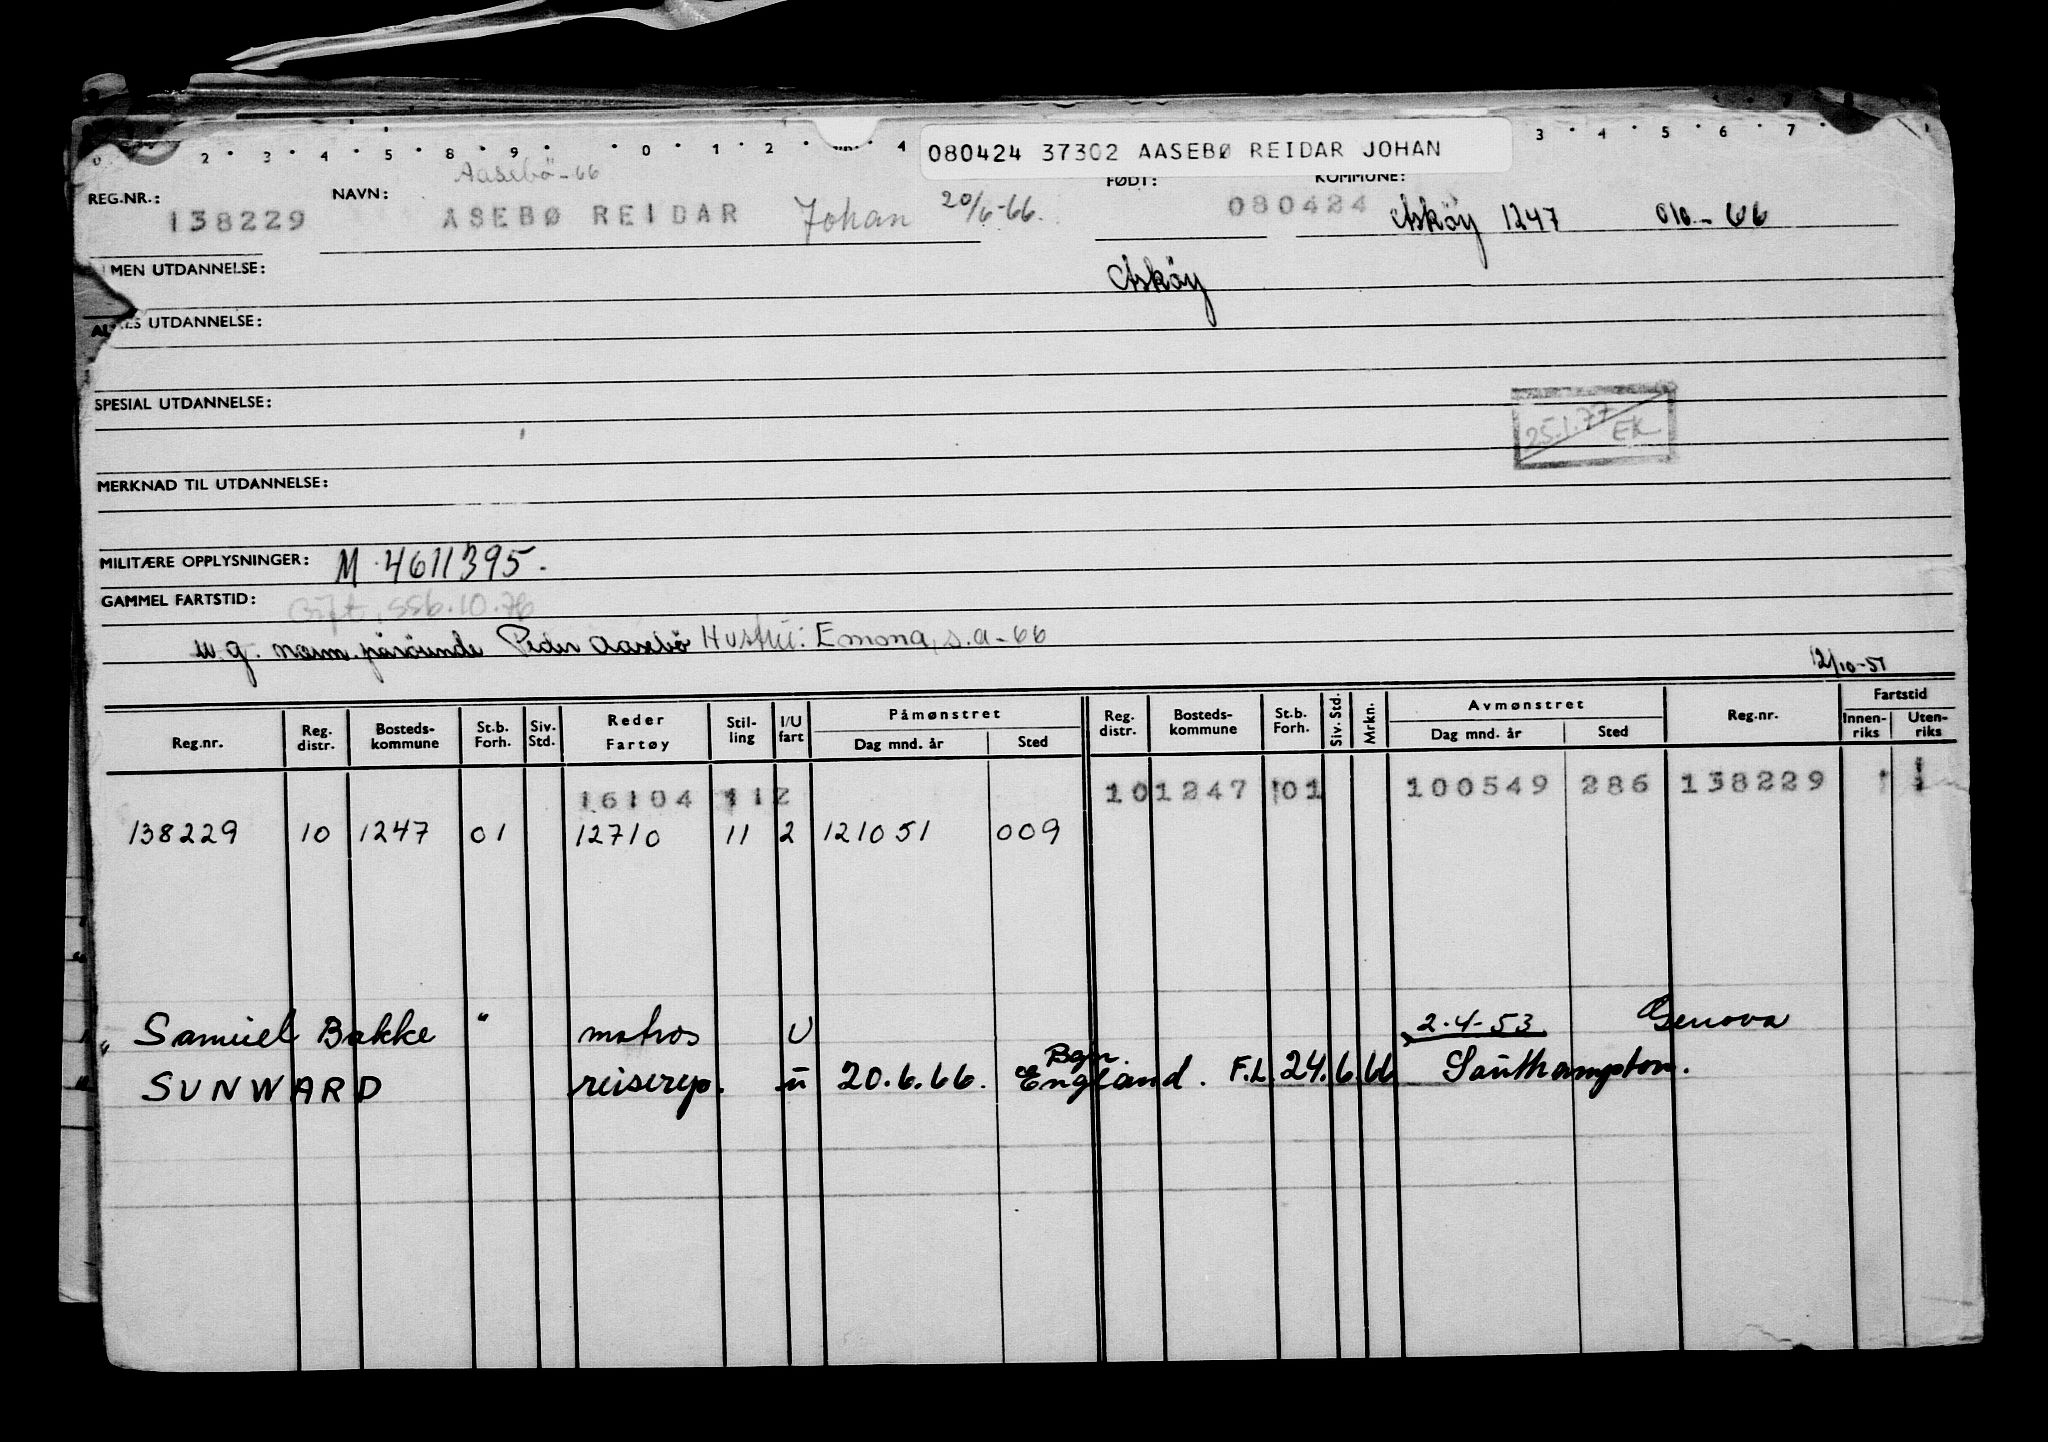 2 · 3 · 4 · 5 · 8 · 9 · · 0 · 1 · 2 · 4
3 · 4 · 5 · 6 · 7 ·
080424 37302 AASEBØ REIDAR JOHAN
Aasebö-66
REG.NR.: NAVN: FØDT: KOMMUNE:
138229 ASEBØ REIDAR Johan 20/6-66. 080424 Asköy 1247 010-66
MEN UTDANNELSE: Asköy
UTDANNELSE:
SPESIAL UTDANNELSE:
25.1.77 EK
MERKNAD TIL UTDANNELSE:
MILITÆRE OPPLYSNINGER: M 4611395.
GAMMEL FARTSTID: Gift, SSb.10.76
m.g. nærm. pårörende Peder Aasebö Hustru: Emona, s.a-66
12/10-51
Reg.nr. Reg. distr. Bosteds-kommune St.b. Forh. Siv. Std. Reder Fartøy Stil-ling I/U fart Påmønstret Dag mnd. år Sted Reg. distr. Bosteds-kommune St.b. Forh. Siv. Std. Mrkn. Avmønstret Dag mnd. år Sted Reg.nr. Fartstid Innen-riks Uten-riks
16104 112 101247 01 100549 286 138229
138229 10 1247 01 12710 11 2 121051 009
" Samuel Bakke " matros U 2.4-53 Genova
SUNWARD reiserep. u 20.6.66. Bgn. England. F.L. 24.6.66 Southampton.